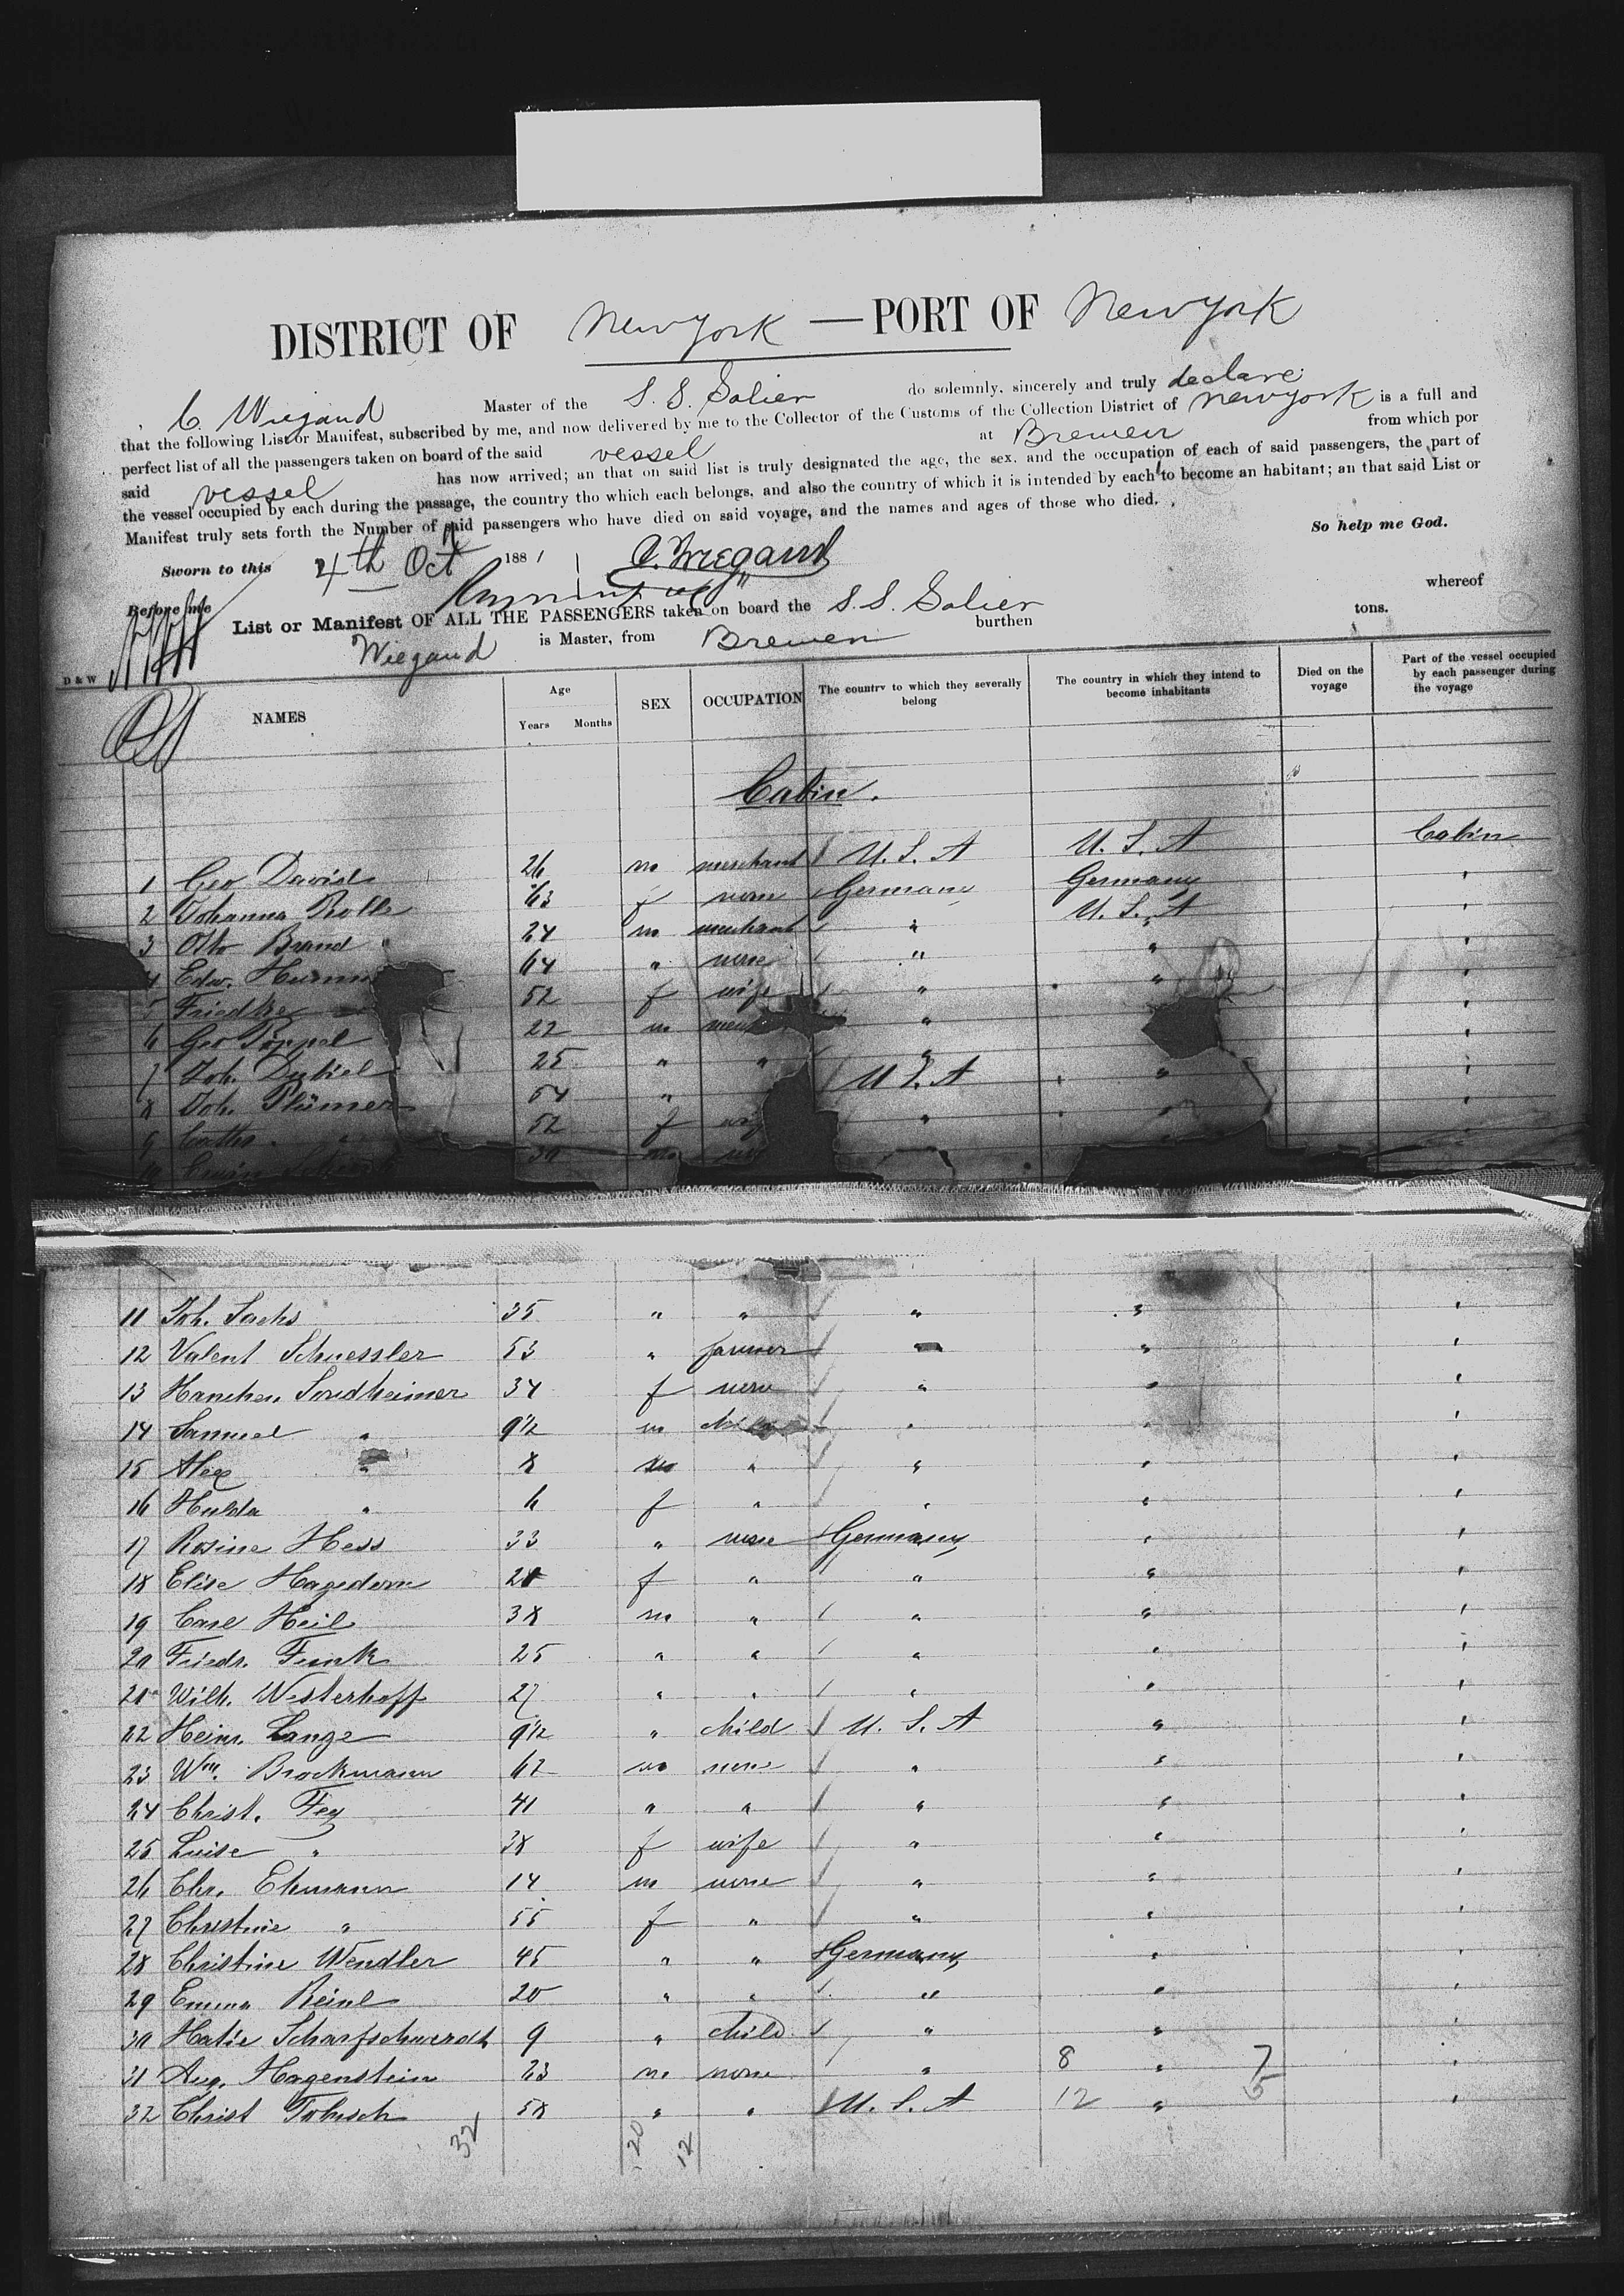 DISTRICT OF New York — PORT OF New York
C. Wiegand Master of the S. S. Salier do solemnly, sincerely and truly declare
that the following List or Manifest, subscribed by me, and now delivered by me to the Collector of the Customs of the Collection District of New York is a full and
perfect list of all the passengers taken on board of the said vessel at Bremen from which por
said vessel has now arrived; an that on said list is truly designated the age, the sex. and the occupation of each of said passengers, the part of
the vessel occupied by each during the passage, the country tho which each belongs, and also the country of which it is intended by each to become an habitant; an that said List or
Manifest truly sets forth the Number of said passengers who have died on said voyage, and the names and ages of those who died.
So help me God.
Sworn to this 4th Oct 1881 C. Wiegand
Before me
List or Manifest OF ALL THE PASSENGERS taken on board the S. S. Salier whereof
Wiegand is Master, from Bremen burthen tons.
D & W
NAMES Age Years Months SEX OCCUPATION The country to which they severally belong The country in which they intend to become inhabitants Died on the voyage Part of the vessel occupied by each passenger during the voyage
Cabin.
1 Geo David 26 m merchant U. S. A U. S. A Cabin
2 Johanna Rolle 63 f none Germany Germany "
3 Otto Brand 24 m merchant " U. S. A "
4 Edw. 64 " none " " "
5 Friedke 52 f wife " " "
6 Geo Töppel 22 m " " "
7 Joh. 25 " " " " "
8 Joh. Plümer 54 " U S. A " "
9 Cathr. " 52 f " " "
10 m
11 Joh. Sachs 35 " " " " "
12 Valent Schuessler 53 " farmer " " "
13 Hanchen Sondheimer 34 f none " " "
14 Samuel " 9 1/2 m child " " "
15 Alex " 8 m " " " "
16 Hulda " 6 f " " " "
17 Rosine Hess 33 " none Germany " "
18 Elise Hagedorn 28 f " " " "
19 Carl Heil 38 m " " " "
20 Friedr. Funk 25 " " " " "
21 Wilh. Westerhoff 27 " " " " "
22 Heinr. Lange 9 1/2 " child U. S. A " "
23 Wm. Brockmann 62 m none " " "
24 Christ. Fey 41 " " " " "
25 Luise " 38 f wife " " "
26 Chr. Ehmann 14 m none " " "
27 Christine " 55 f " " " "
28 Christine Wendler 45 " " Germany " "
29 Emma Reinl 20 " " " " "
30 Hatie Scharfschwerdt 9 " child " " "
31 Aug. Hagenstein 23 m none " 8 " 7 "
32 Christ Tobisch 58 " " U. S. A 12 " 5 "
32 20 12